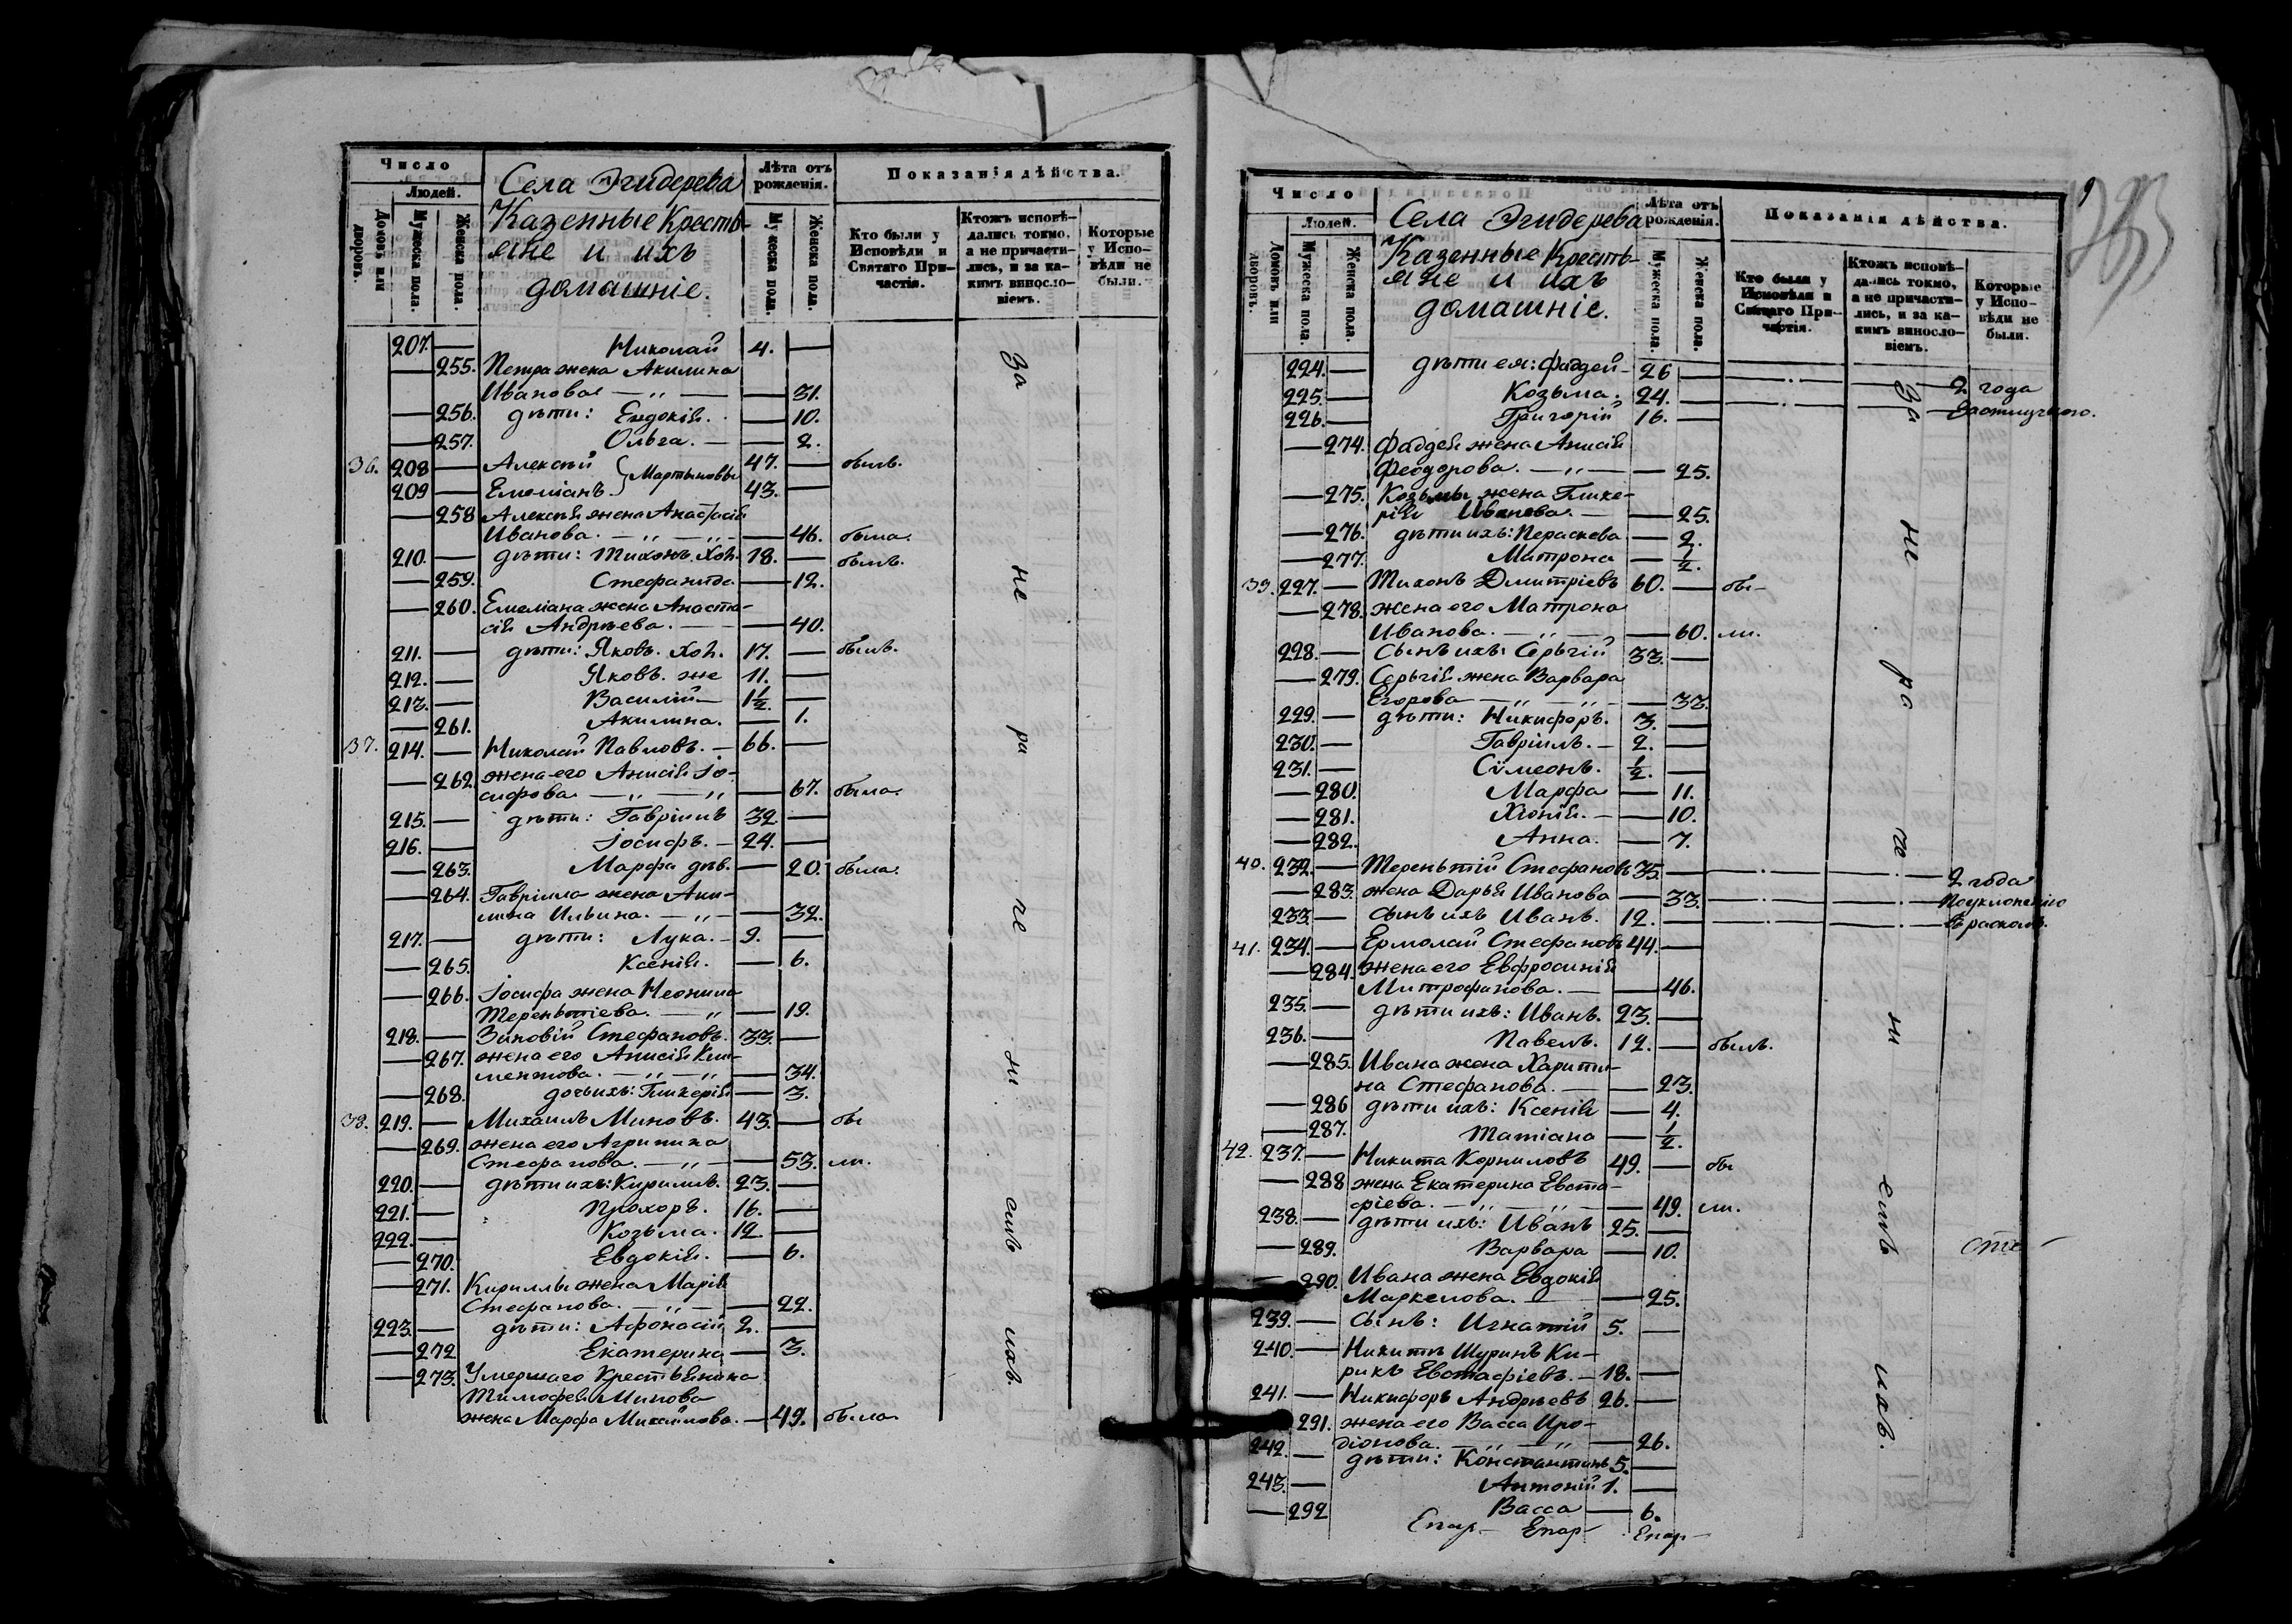 Число
Людей.
Домовъ или дворовъ.
Мужеска пола.
Женска пола.
Села Эгидерева
Казенные Кресть-
яне и ихъ
домашніе.
Лѣта отъ рожденія.
Мужеска пола.
Женска пола.
Показанія дѣйства.
Кто были у Исповѣди и Святаго При-
частія.
Ктожъ исповѣ-
дались токмо, а не причасти-
лись, и за ка-
кимъ винос­ло-
віемъ.
Которые у Испо-
вѣди не были.
207. — Николай 4. —
— 255. Петра жена Акилина
Иванова — „ — — 31.
— 256. дѣти: Евдокія. — 10.
— 257. Ольга. — — 2.
36. 208 — Алексѣй } Мартыновы 47. — былъ.
209 — Емеліанъ 43. —
— 258 Алексѣя жена Анастасія
Иванова. — „ — „ — 46. была.
210. — дѣти: Тихонъ. Хол. 18. — былъ.
— 259. Стефанида — 12.
— 260. Емеліана жена Анаста-
сія Андрѣева. — — 40.
211. — дѣти: Яковъ. Хол. 17. — былъ.
212. — Яковъ. же 11. —
213. — Василій — 1½. —
— 261. Акилина. — 1.
37. 214. — Николай Павловъ. — 66. —
— 262. жена его Анисія Іо-
сифова — „ — „ — 67. была.
215. — дѣти: Гавріилъ 32. —
216. — Іосифъ. — 24. —
— 263. Марфа дѣв. — 20. была.
— 264. Гавріила жена Аки-
лина Ильина. — „ — — 32.
217. — дѣти: Лука. — 9. —
— 265. Ксенія. — 6.
— 266. Іосифа жена Неонила
Терентіева. — „ — 19.
218. — Зиновій Стефановъ. 33. —
— 267. жена его Анисія Кли-
ментова. — „ — „ — 34.
— 268. дочь ихъ: Гликерія — 3.
38. 219. — Михаилъ Миновъ. 43. — бы
— 269. жена его Агрипина
Стефанова. — „ — — 53. ли.
220. — дѣти ихъ: Кирилъ. 23. —
221. — Прохоръ. 16. —
222. — Козьма. 12. —
— 270. Евдокія. — 6.
— 271. Кириллы жена Марія
Стефанова. — „ — — 22.
223. — дѣти: Афонасій 2. —
— 272 Екатерина — 3.
— 273. Умершаго Крестьянина
Тимофея Минова
жена Марфа Михайлова. — 49. была
За не ра че ні емъ ихъ.
Число
Людей.
Домовъ или дворовъ.
Мужеска пола.
Женска пола.
Села Эгидерева
Казенные Кресть-
яне и ихъ
домашніе.
Лѣта отъ рожденія.
Мужеска пола.
Женска пола.
Показанія дѣйства.
Кто были у Исповѣди и Святаго При-
частія.
Ктожъ исповѣ-
дались токмо, а не причасти-
лись, и за ка-
кимъ винос­ло-
віемъ.
Которые у Испо-
вѣди не были.
224. — дѣти ея: Фаддей — 26 — 2 года
225. — Козьма. 24. —
226. — Григорій 16. —
— 274. Фаддея жена Анисія
Феодорова. — „ — — 25.
— 275. Козьмы жена Глике-
рія Иванова. — — 25.
— 276. дѣти ихъ: Пераскева — 2.
— 277. Матрона — ½.
39. 227. — Тихонъ Дмитріевъ 60. — бы-
— 278. жена его Матрона
Иванова. — „ — — 60. ли.
228. — Сынъ ихъ: Сергій 33. —
— 279. Сергія жена Варвара
Егорова — „ — „ — 33.
229. — дѣти: Никифоръ. 3. —
230. — Гавріилъ. — 2. —
231. — Сімеонъ. ½. —
— 280. Марфа — 11.
— 281. Хіонія. — — 10.
— 282. Анна. — 7.
40. 232. — Терентій Стефановъ 35. — 2 года
— 283. жена Дарья Иванова — 33. — По уклоненію
233. — сынъ ихъ Иванъ. 12. — въ расколъ.
41. 234. — Ермолай Стефановъ 44. —
— 284. жена его Евфросинія
Митрофанова. — — 46.
235. — дѣти ихъ: Иванъ. 23. —
236. — Павелъ. 12. — былъ.
— 285. Ивана жена Харити-
на Стефанова. — — 23.
— 286 дѣти ихъ: Ксенія — 4.
— 287. Татіана — ½.
42. 237. — Никита Корниловъ 49. — бы
— 288 жена Екатерина Евста-
фіева. — „ — „ — 49. ли.
238. — дѣти ихъ: Иванъ 25. —
— 289. Варвара — 10.
— 290. Ивана жена Евдокія
Маркелова. — — 25.
239. — Сынъ: Игнатій 5. —
240. — Никиты Шуринъ Ки-
рикъ Евстафіевъ. — 18. —
241. — Никифоръ Андрѣевъ 26. —
— 291. жена его Васса Иро-
діонова. — „ — „ — 26.
242. — дѣти: Константинъ 5. —
243. — Антоній 1. —
— 292 Васса — 6.
За не ра че ні емъ ихъ.